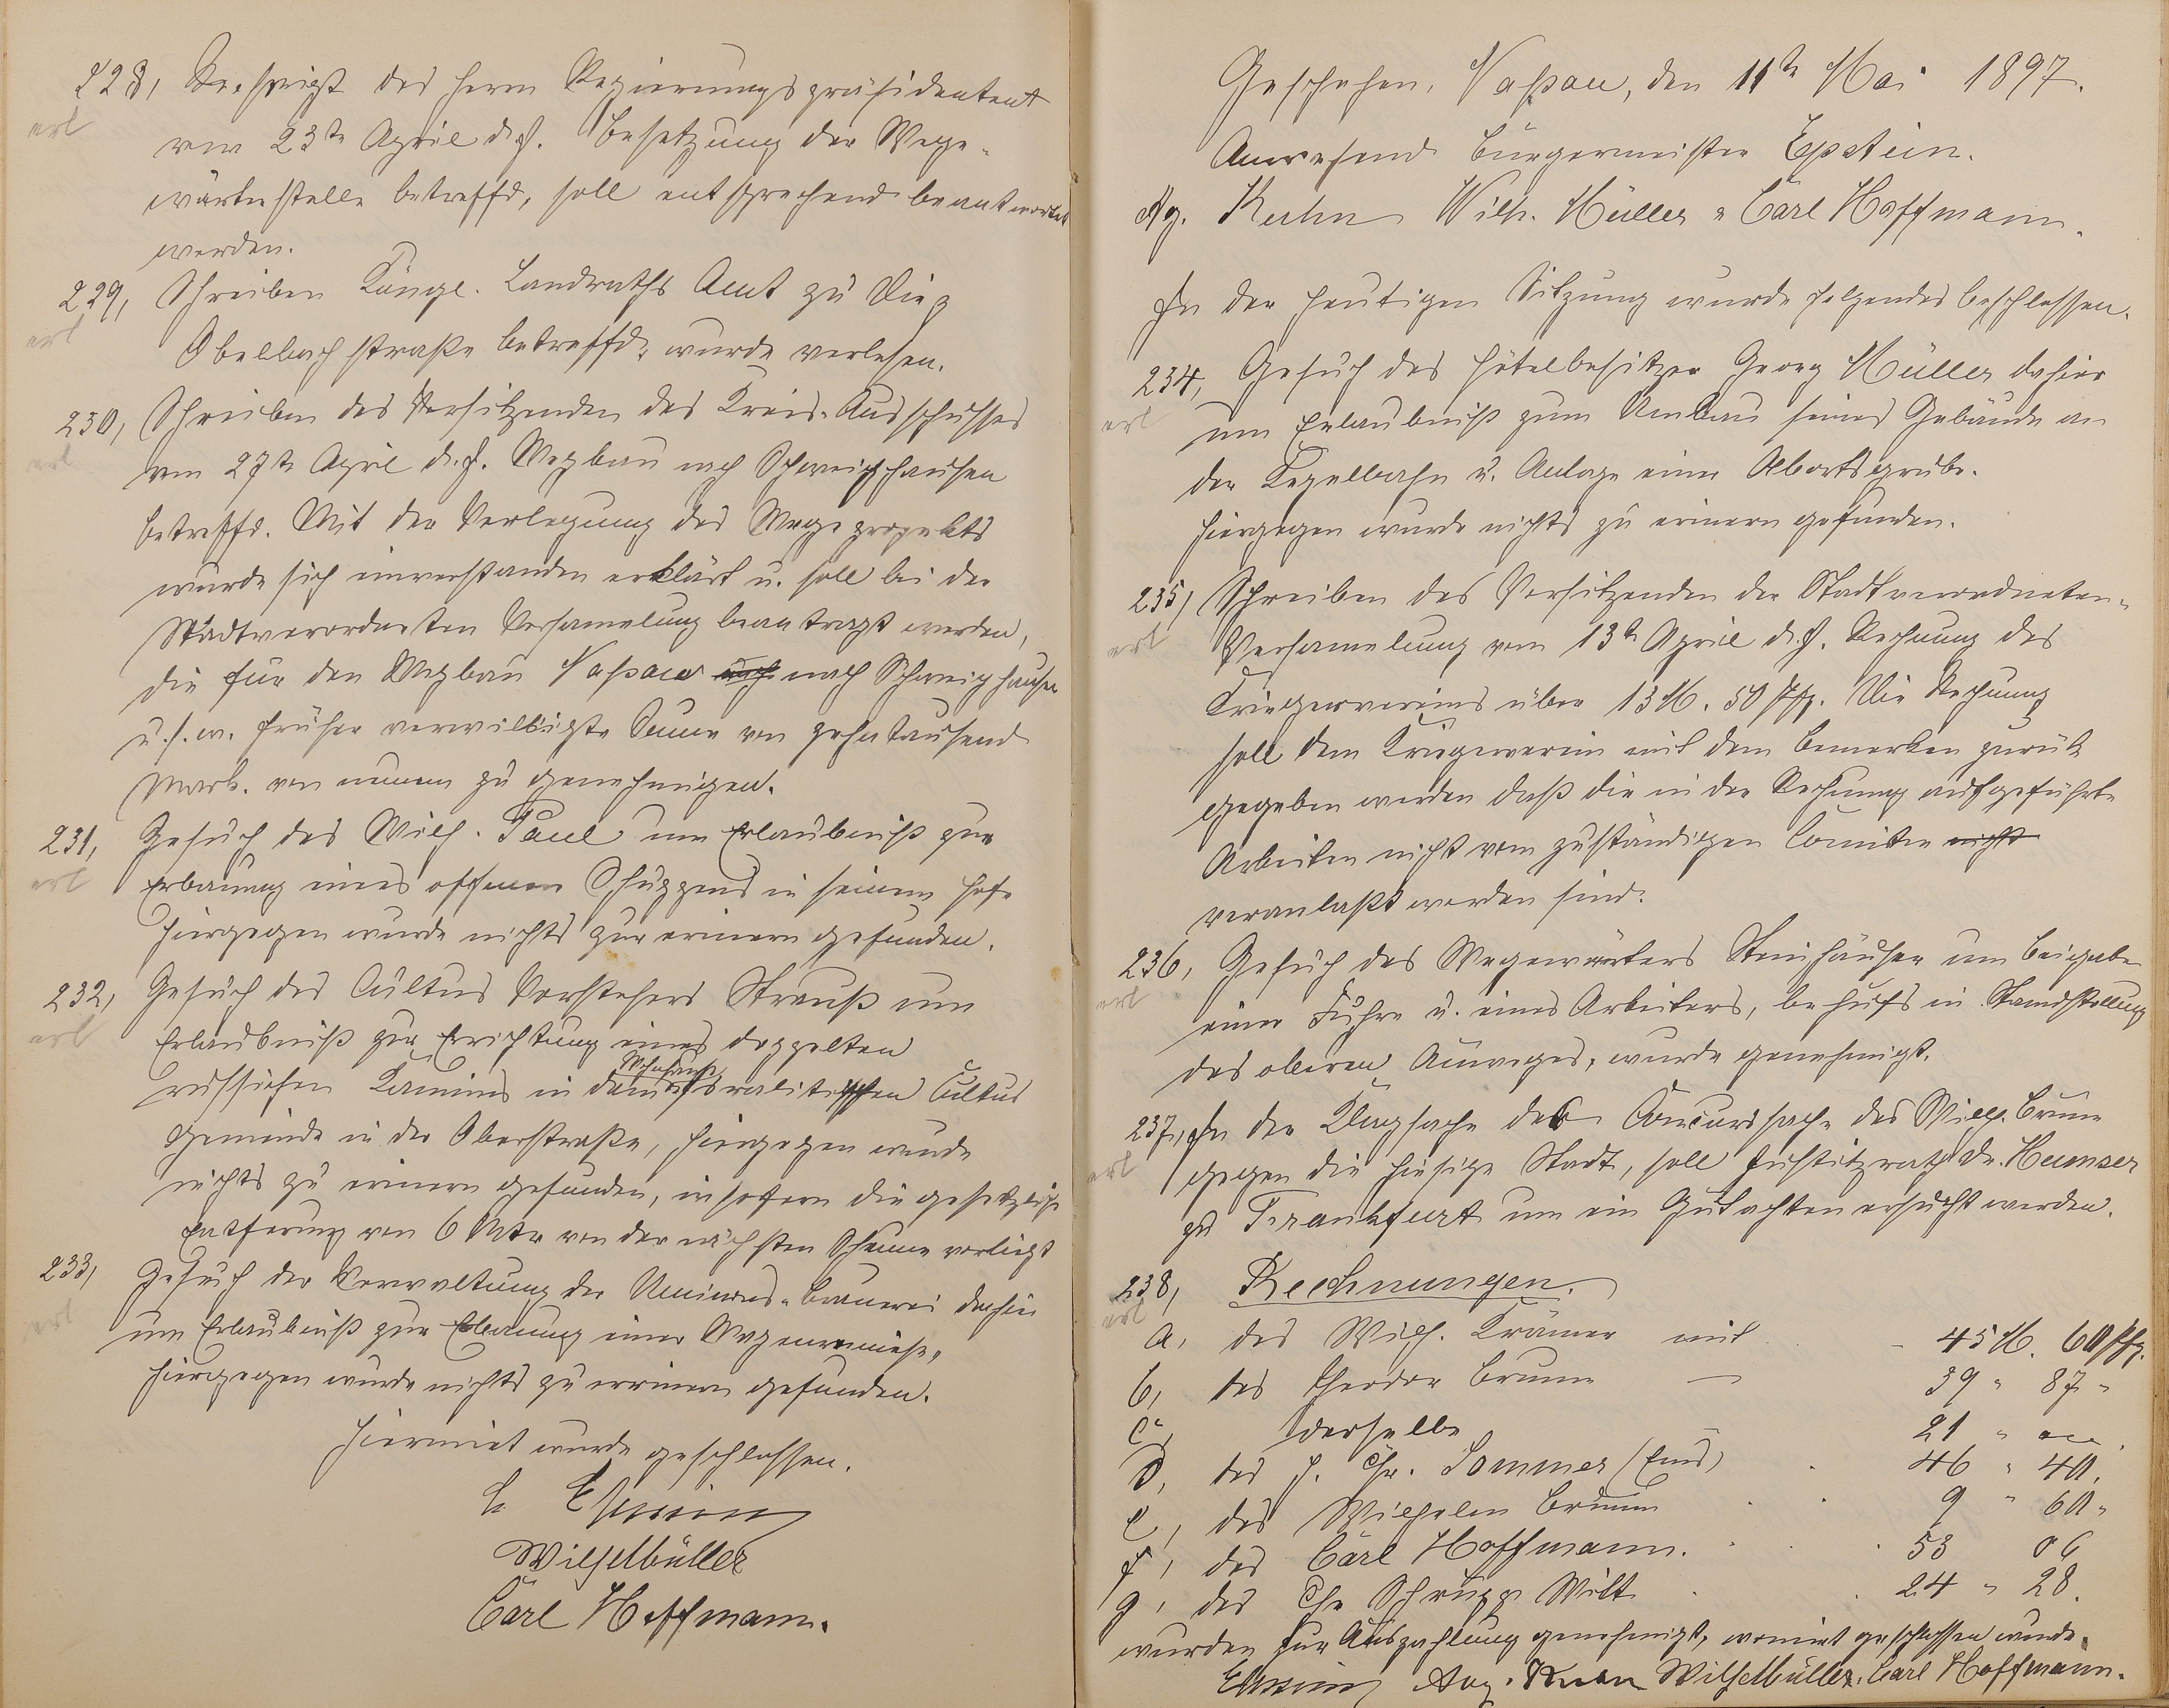 228, des Herrn Regierungspräsidenten
erl
vom 23te April d. J. Besetzung der Wege-
wärterstelle betreffd, soll entsprechend beantwortet
werden.
229, Schreiben Königl. Landraths Amt zu Diez
erl
Obelbach straße betreffd. wurde verlesen.
230, Schreiben des Vorsitzenden des Kreis-Ausschusses
erl
vom 27te April d. J. Wegbau nach Schweighausen
betreffd. Mit der Verlegung des Wegeprojekts
wurde sich einverstanden erklärt u. soll bei der
Stadtverordneten Versamelung beantragt werden,
die für den Wegbau Naßau nach nach Schweighausen
u. s. w. früher verwilligte Sume von zehntausend
Mark. von neuem zu genehmigen.
231, Gesuch des Wilh. Paul um Erlaubniß zur
erl
Erbauung eines offenen Schuppens in seinem Hofe
hiergegen wurde nichts zu erinern gefunden.
232, Gesuch des Cultus Vorstehers Strauß um
erl
Erlaubniß zur Errichtung eines doppelten
Wohnhaus
russischen Kamins in dem israelitischen Cultus
Gemeinde in der Oberstraße, hiergegen wurde
nichts zu erinern gefunden, insofern die gesetzliche
Entfernung von 6 Mtr von der nächsten Scheune vorliegt
233, Gesuch der Verwaltung der Unions-Brauerei dahier
erl
um Erlaubniß zur Erbauung einer Wagenremise,
hiergegen wurde nichts zu erinnern gefunden.
Hiermit wurde geschlossen.
Epstein
Wilh Müller
Carl Hoffmann.
Geschehen, Naßau, den 11te Mai 1897.
Anwesend Bürgermeister Epstein.
Ag. Kuhn Wilh. Müller u Carl Hoffmann.
In der heutigen Sitzung wurde folgendes beschlossen.
234, Gesuch des Hôtelbesitzer Georg Müller dahier
erl
um Erlaubniß zum Umbau seines Gebäude an
der Kegelbahn u. Anlage einer Abortsgrube.
hiergegen wurde nichts zu erinern gefunden.
235, Schreiben des Vorsitzenden der Stadtverordneten-
erl
Versamelung vom 13te April d. J. Rechnung des
Kriegervereins über 13 M. 50 Pfg. Die Rechnung
soll dem Kriegerverein mit dem Bemerken zurück
gegeben werden daß die in der Rechnung aufgeführte
Arbeiten nicht vom zuständigen Comitee nicht
veranlaßt worden sind.
236, Gesuch des Wegewärters Steinhäuser um Beigabe
erl
einer Fuhre u. eines Arbeiters, behufs in Standstellung
des oberen Auweges, wurde genehmigt.
237, In der Klagsache der Concurssache des Wilh. Bruns
erl
gegen die hiesige Stadt, soll Justitzrath Dr. Humser
zu Frankfurt um ein Gutachten ersucht werden.
238, Rechnungen.
erl
a, des Wilh. Krämer mit 45 M. 60 Pfg.
b, des Theodor Bruns — 39 " 87 "
c, derselbe 21 "
d, des H. Chr. Sommer (Ems) 46 " 40.
e, des Wilhelm Bruns 9 " 60 "
f, des Carl Hoffmann. 53 06
g, des Chr Schrupp Witt. 24 " 28.
wurden zur Auszahlung genehmigt, womit geschlossen wurde.
Epstein Aug. Kuhn Wilh Müller. Carl Hoffmann.